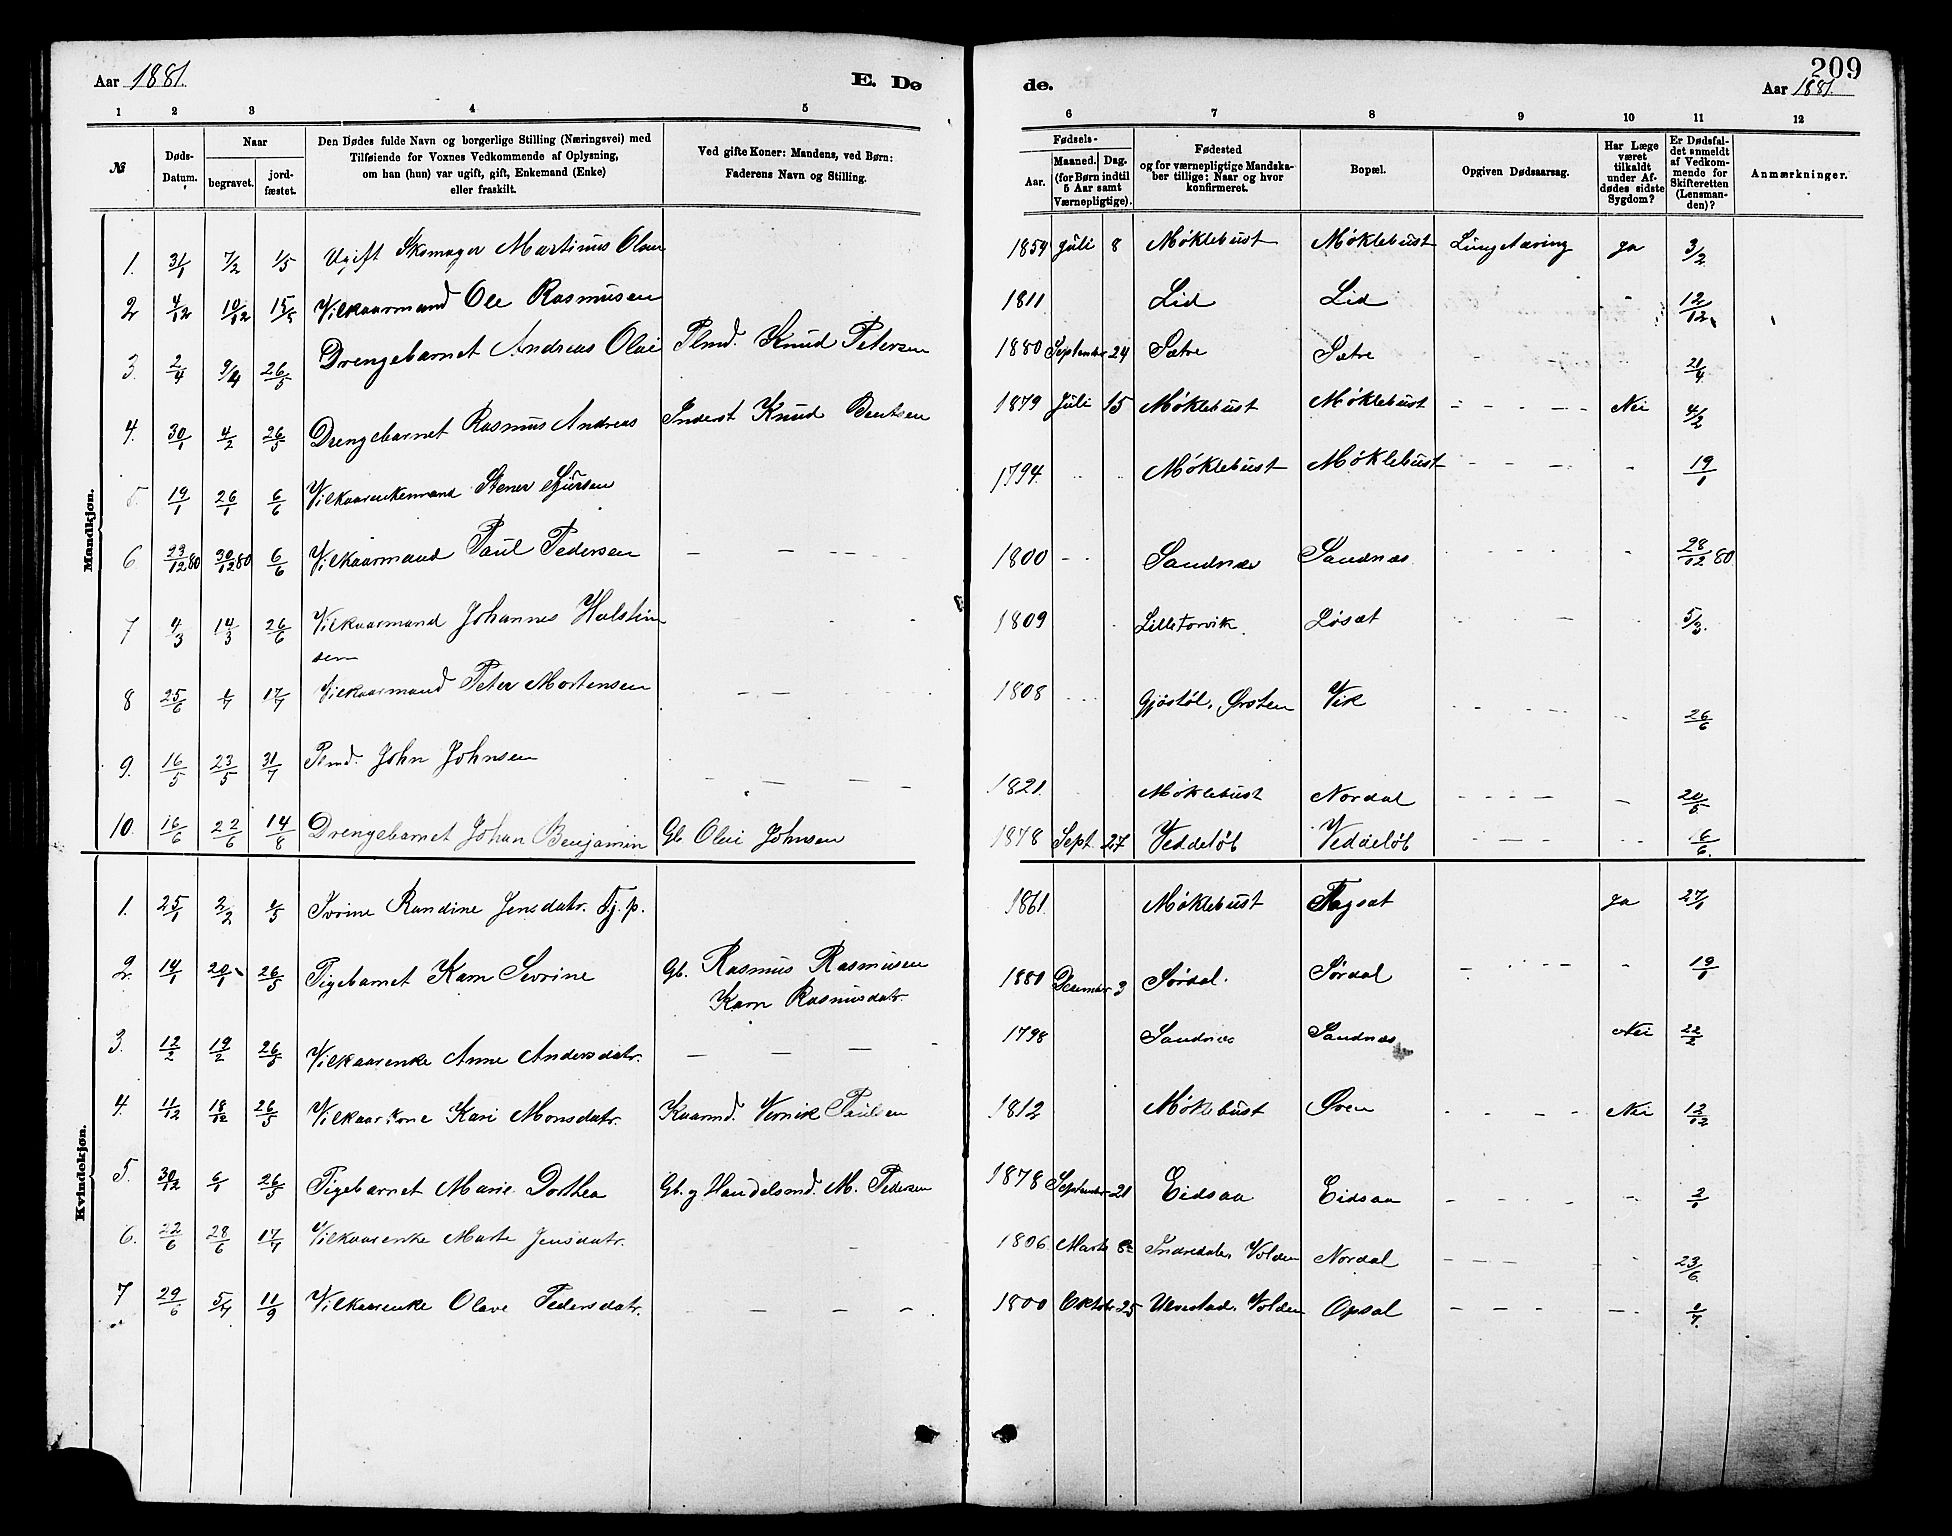 209
Aar 1881. E. Dø de. Aar 1881.
1 2 3 4 5 6 7 8 9 10 11 12
№
Døds-
Datum.
Naar
begravet.
jord-
fæstet.
Den Dødes fulde Navn og borgerlige Stilling (Næringsvei) med
Tilføiende for Voxnes Vedkommende af Oplysning,
om han (hun) var ugift, gift, Enkemand (Enke)
eller fraskilt.
Ved gifte Koner: Mandens, ved Børn:
Faderens Navn og Stilling.
Fødsels-
Aar.
Maaned. Dag.
(for Børn indtil
5 Aar samt
Værnepligtige).
Fødested
og for værnepligtige Mandska-
ber tillige: Naar og hvor
konfirmeret.
Bopæl.
Opgiven Dødsaarsag.
Har Læge
været
tilkaldt
under Af-
dødes sidste
Sygdom?
Er Dødsfal-
det anmeldt
af Vedkom-
mende for
Skifteretten
(Lensman-
den)?
Anmærkninger.
Mandkjøn.
1. 31/1 7/2 1/5 Ugift Skomager Martinus Olsen 1854 Juli 8 Møklebust Møklebust Lungetæring Ja 3/2
2 4/12 10/12 15/5 Vilkaarmand Ole Rasmusen 1811 Lid Lid - 12/12
3. 2/4 9/4 26/5 Drengebarnet Andreas Olai Plmd. Knud Petersen 1880 September 24 Sætre Sætre 21/4
4. 30/1 4/2 26/5 Drengebarnet Rasmus Andreas Inderst Knud Bentsen 1879 Juli 15 Møklebust Møklebust - - - - Nei 4/2
5 19/1 26/1 6/6 Vilkaarenkemand Stener 1794. Møklebust Møklebust - - - - 19/1
6. 23/12 80 30/12 80 6/6 Vilkaarmand Paul Pedersen - - - - 1800 - - Sandnæs Sandnæs - - - - 28/12 80
7 4/3 14/3 26/6 Vilkaarmand Johannes Holstin
sen 1809 Lilletorvik. Løsæt - - - 5/3.
8 25/6 1/7 17/7 Vilkaarmand Peter Mortensen - - - 1808 Gjøstøl, Ørsten Vik - - - - 26/6
9. 16/5 23/5 31/7 Plmd. John Johnsen - - - - 1821. Møklebust Nordal - - - - - 20/5
10. 16/6 22/6 14/8 Drengebarnet Johan Benjamin Gb. Olai Johnsen 1878 Sept. 27 Veddeløb Veddeløb - - - - - 6/6.
Kvindekjøn.
1. 25/1 2/2 1/5 Ivrine Randine Jensdatr. Tj. p. 1861. Møklebust Fagsæt Ja 27/1
2. 14/1 20/1 26/5 Pigebarnet Karn Sevrine Gb. Rasmus Rasmusen
Karn Rasmusdatr. 1880 December 3 Sørdal. Sørdal - - - - - 19/1
3. 12/2 19/2 26/5 Vilkaarenke Anne Andersdatr. - - - 1798 Sandnæs Sandnæs Nei 22/2
4. 11/12 18/12 26/5 Vilkaarkone Kari Monsdatr. Kaarmd. Vernik Paulsen 1812 Møklebust Øren - - - - Nei 12/12
5. 30/12 6/1 26/5 Pigebarnet Marie Dorthea Gb. og Handelsmd. M. Pedersen 1878 September 21 Eidsaa Eidsaa - - - - - 2/1
6. 22/6 28/6 17/7 Vilkaarenke Marte Jensdatr. - 1806. Marts 8 Indredale, Volden Nordal - - - - 23/6.
7 29/6 5/7 11/9 Vilkaarenke Olave Pedersdatr. - - - - 1800 Oktobr. 25 Ulvestad, Volden Opsal - - - - - 2/7.